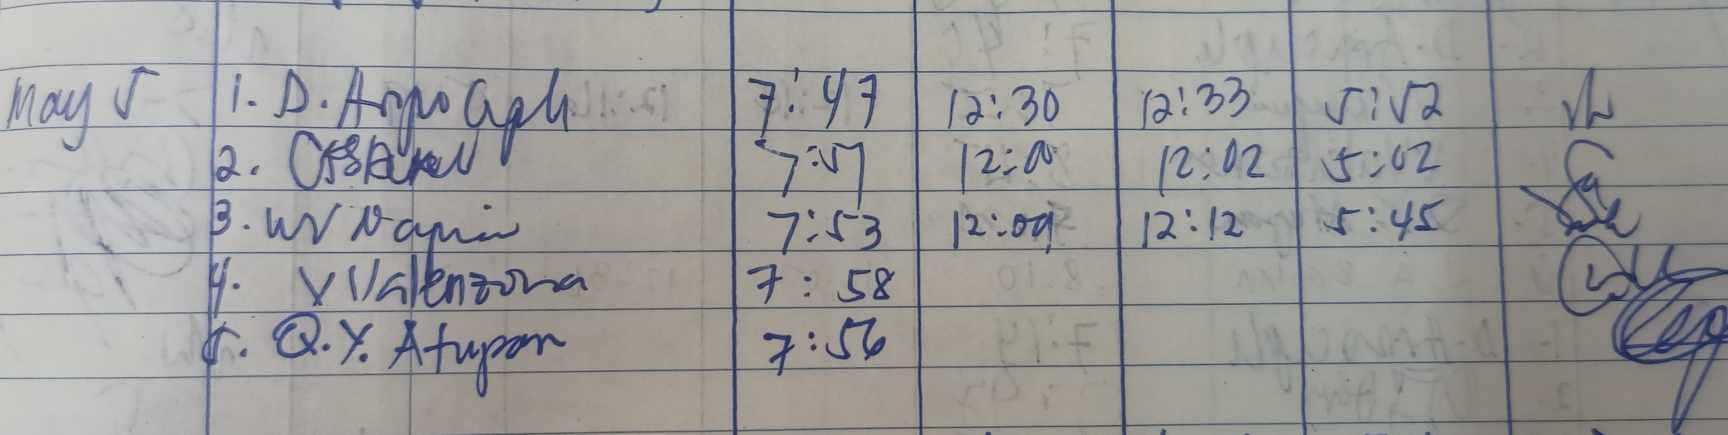 May 5 1. D. 7:47 12:30 12:33 5:52
2. 7:57 12:00 12:02 5:02
3. 7:53 12:09 12:12 5:45
4. V Valenzona 7:58
5. Q.Y. Atupan 7:56